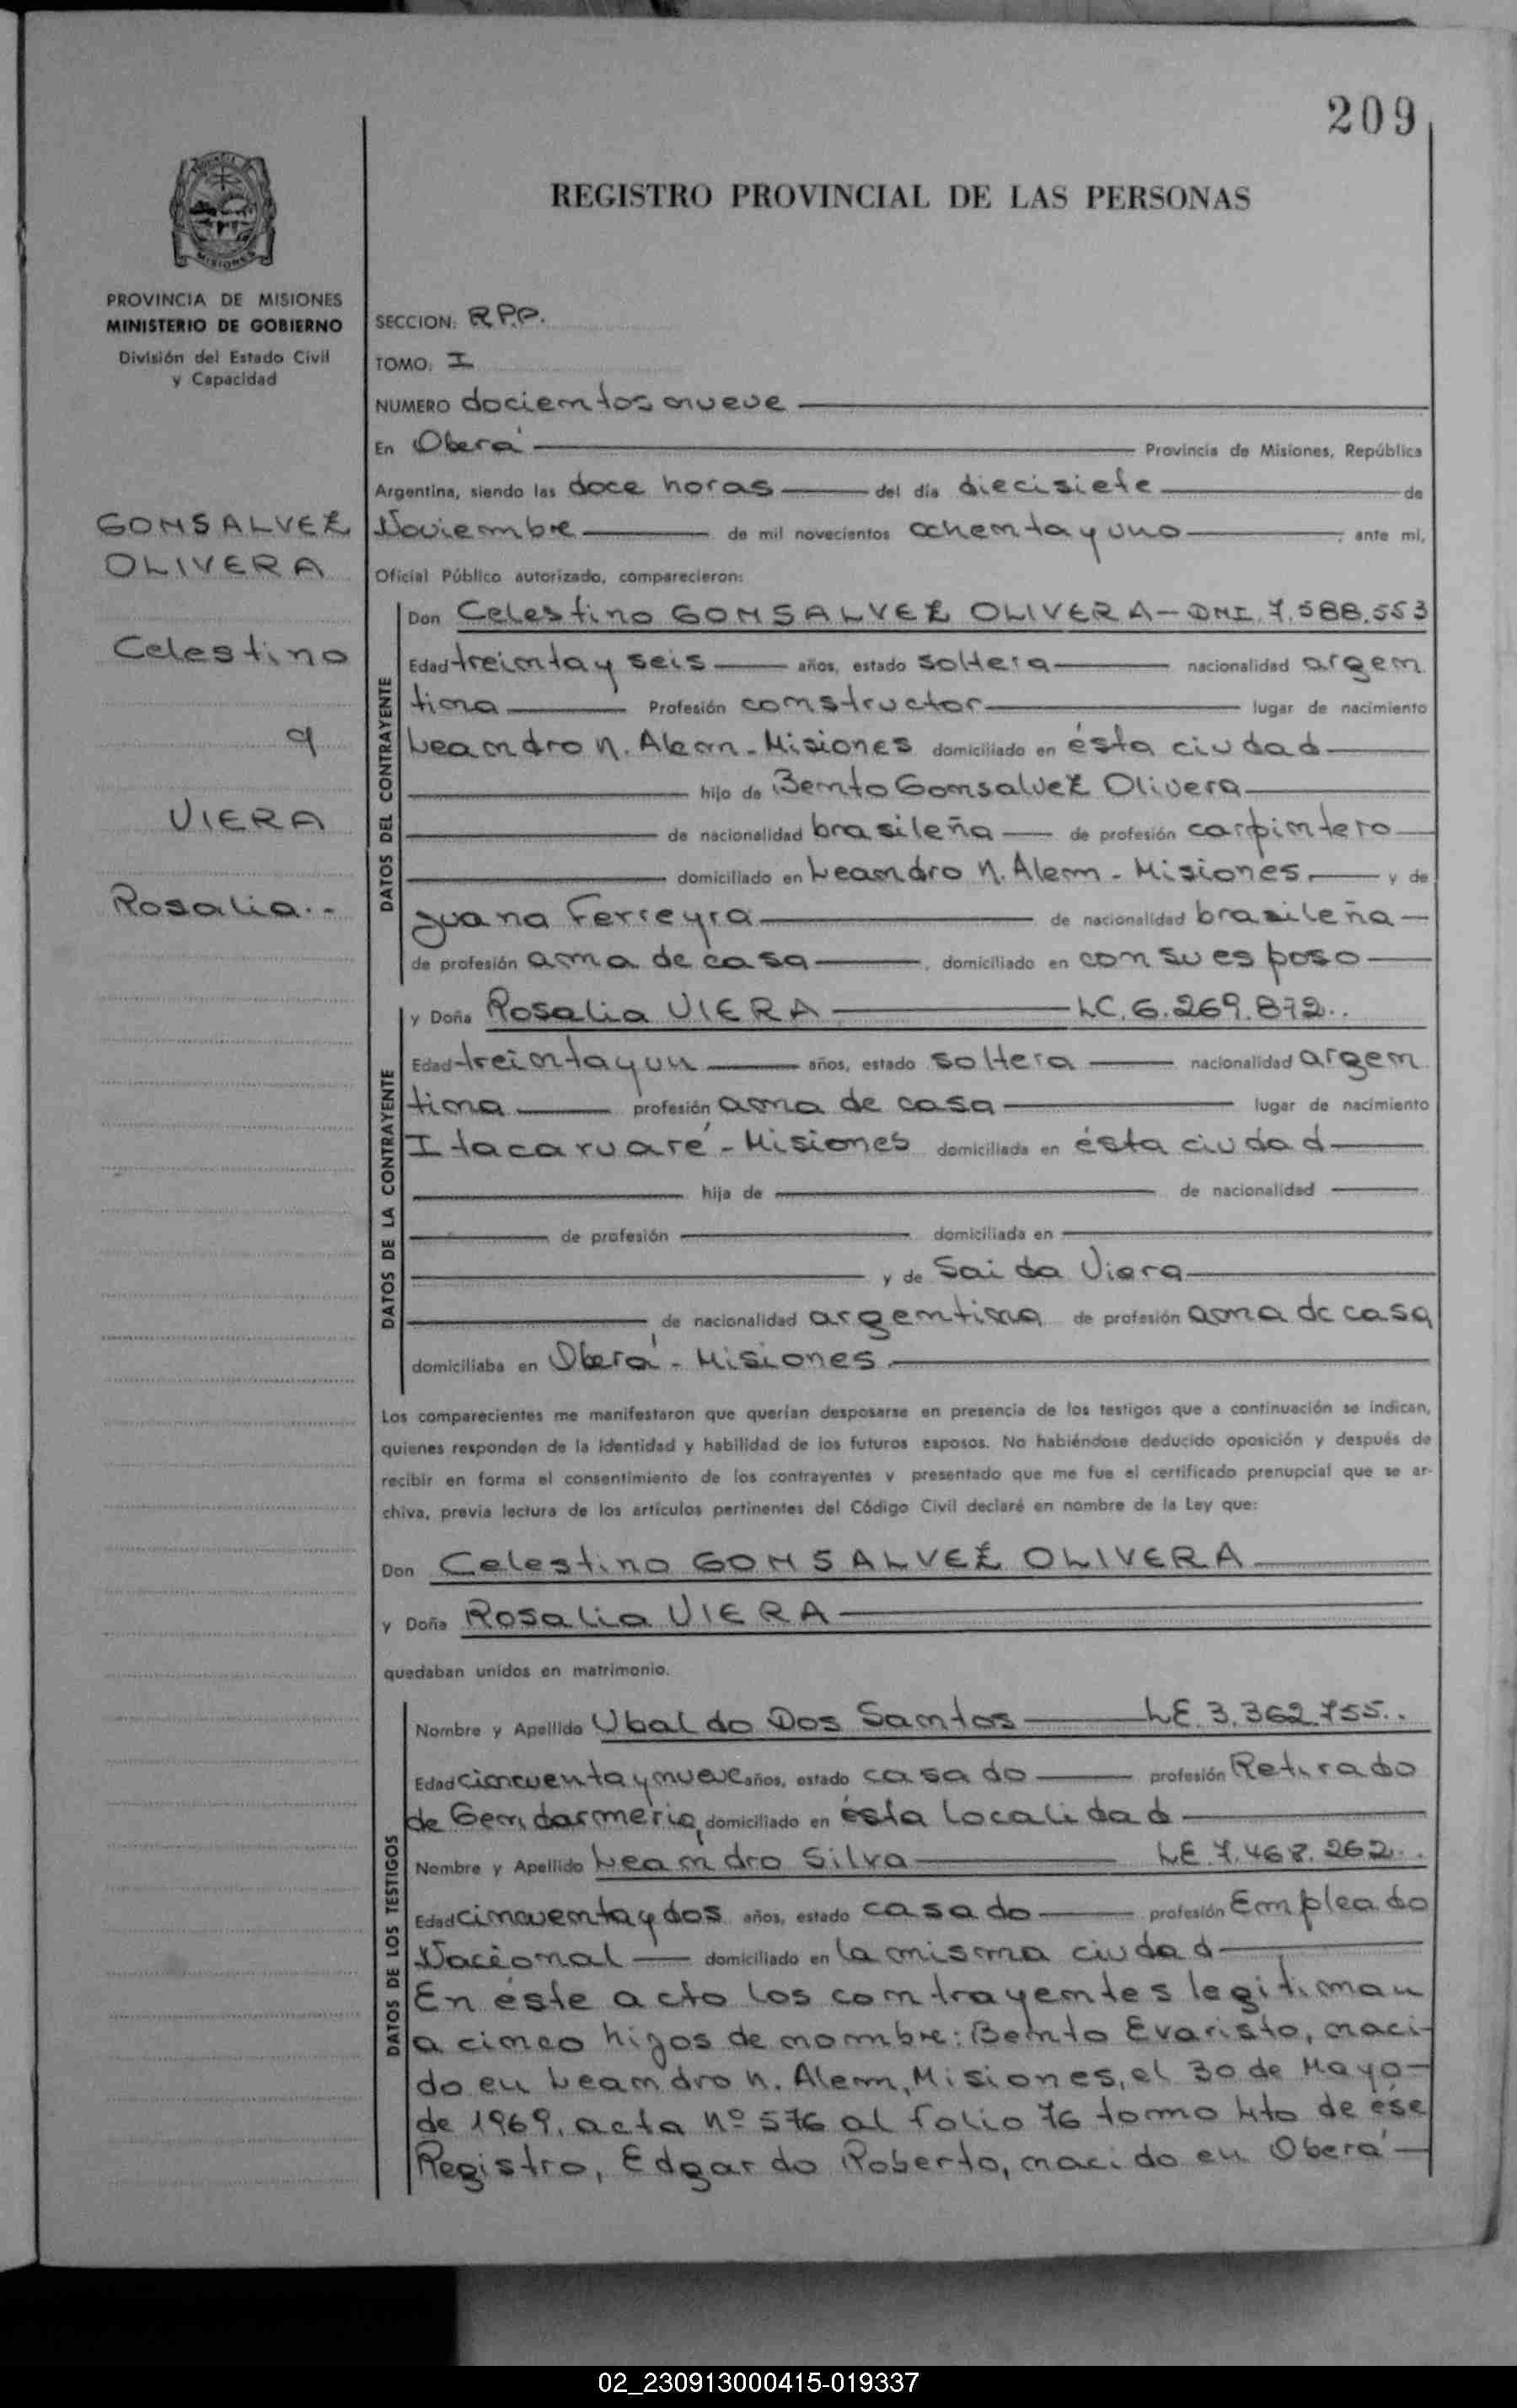 209
REGISTRO PROVINCIAL DE LAS PERSONAS
MISIONES
PROVINCIA DE MISIONES
MINISTERIO DE GOBIERNO
División del Estado Civil
y Capacidad
GONSALVEZ
OLIVERA
Celestino
y
VIERA
Rosalia..-
SECCION: R.P.P.
TOMO: I
NUMERO docientos nueve
En Oberá Provincia de Misiones, República
Argentina, siendo las doce horas del día diecisiete de
Noviembre de mil novecientos ochenta y uno ; ante mi,
Oficial Público autorizado, comparecieron:
DATOS DEL CONTRAYENTE
Don Celestino GONSALVEZ OLIVERA - DNI. 7.588.553
Edad treinta y seis años, estado soltera nacionalidad argen
tina Profesión constructor lugar de nacimiento
Leandro N. Alem - Misiones domiciliado en ésta ciudad
hijo de Bento Gonsalvez Olivera
de nacionalidad brasileña de profesión carpintero
domiciliado en Leandro N. Alem - Misiones. y de
Juana Ferreyra de nacionalidad brasileña
de profesión ama de casa , domiciliado en con su esposo
DATOS DE LA CONTRAYENTE
y Doña Rosalia VIERA LC. 6.269.872..
Edad treinta y un años, estado soltera nacionalidad argen
tina profesión ama de casa lugar de nacimiento
Itacaruaré - Misiones domiciliada en ésta ciudad
hija de de nacionalidad
de profesión domiciliada en
y de Saida Viera
de nacionalidad argentina de profesión ama de casa
domiciliaba en Oberá - Misiones
Los comparecientes me manifestaron que querían desposarse en presencia de los testigos que a continuación se indican,
quienes responden de la identidad y habilidad de los futuros esposos. No habiéndose deducido oposición y después de
recibir en forma el consentimiento de los contrayentes y presentado que me fue el certificado prenupcial que se ar-
chiva, previa lectura de los artículos pertinentes del Código Civil declaré en nombre de la Ley que:
Don Celestino GONSALVEZ OLIVERA
y Doña Rosalia VIERA
quedaban unidos en matrimonio.
DATOS DE LOS TESTIGOS
Nombre y Apellido Ubaldo Dos Santos LE. 3.362.755..
Edad cincuenta y nueve años, estado casado profesión Retirado
de Gendarmeria, domiciliado en ésta localidad
Nombre y Apellido Leandro Silva LE. 7.468.262..
Edad cincuenta y dos años, estado casado profesión Empleado
Nacional domiciliado en la misma ciudad
En éste acto los contrayentes legitiman
a cinco hijos de nombre: Bento Evaristo, naci-
do en Leandro N. Alem, Misiones, el 30 de Mayo
de 1969, acta Nº 576 al folio 76 tomo 4to de ése
Registro, Edgardo Roberto, nacido en Oberá
02_230913000415-019337